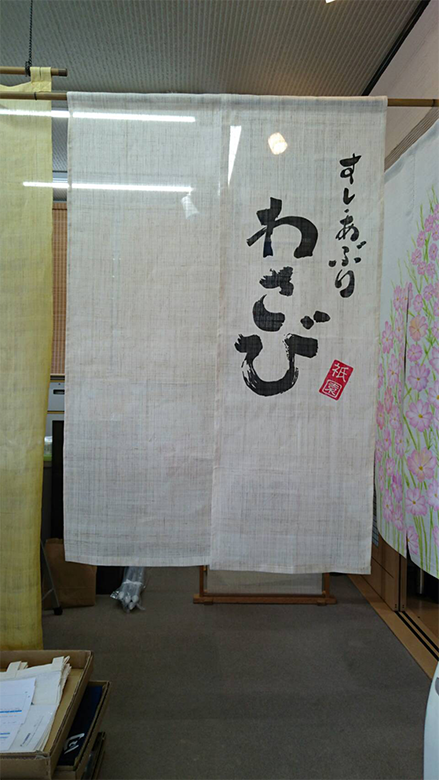 すし・あぶり
わさび
祇園